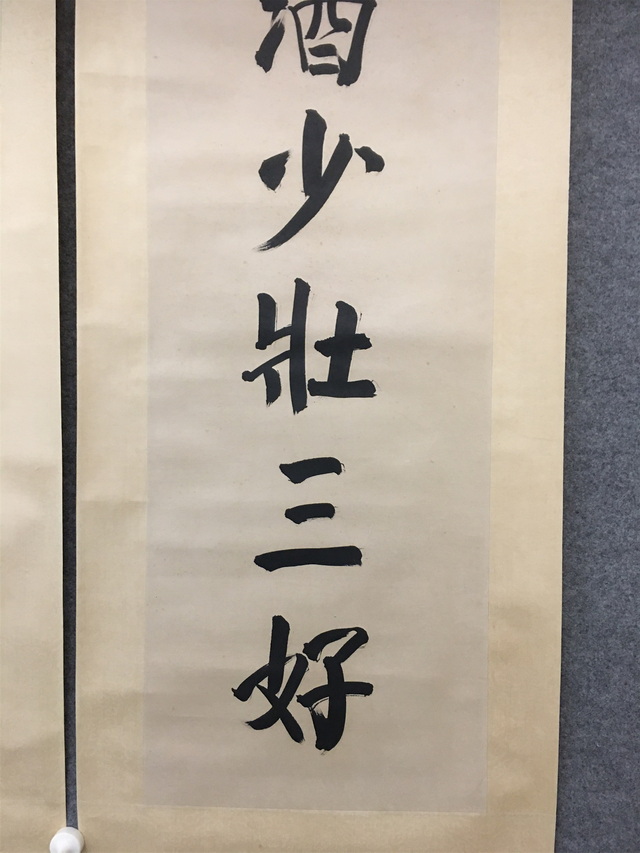 酒少壯三好